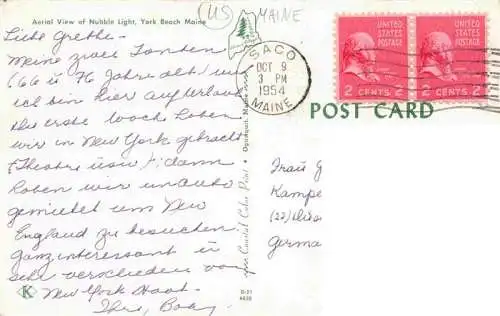 (US) MAINE
Aerial View of Nubble Light, York Beach Maine
Liebe Grethe:
Meine zwei Tanten
(66 u 76 Jahre alt) und
ich bin hier auf Urlaub
die erste Woch haben
wir in New York gebracht
(Theatre usw) & dann
haben wir ein auto
gemietet um New
England zu besuchen.
Ganz interessant u
sehr verschieden von
New York Stadt.
SACO
OCT 9
3 PM
1954
MAINE
UNITED STATES POSTAGE
2 CENTS 2
UNITED STATES POSTAGE
2 CENTS 2
POST CARD
Ogunquit, Maine
Coastal Color Print
Frau G
Kampe
(22)
Germa
K